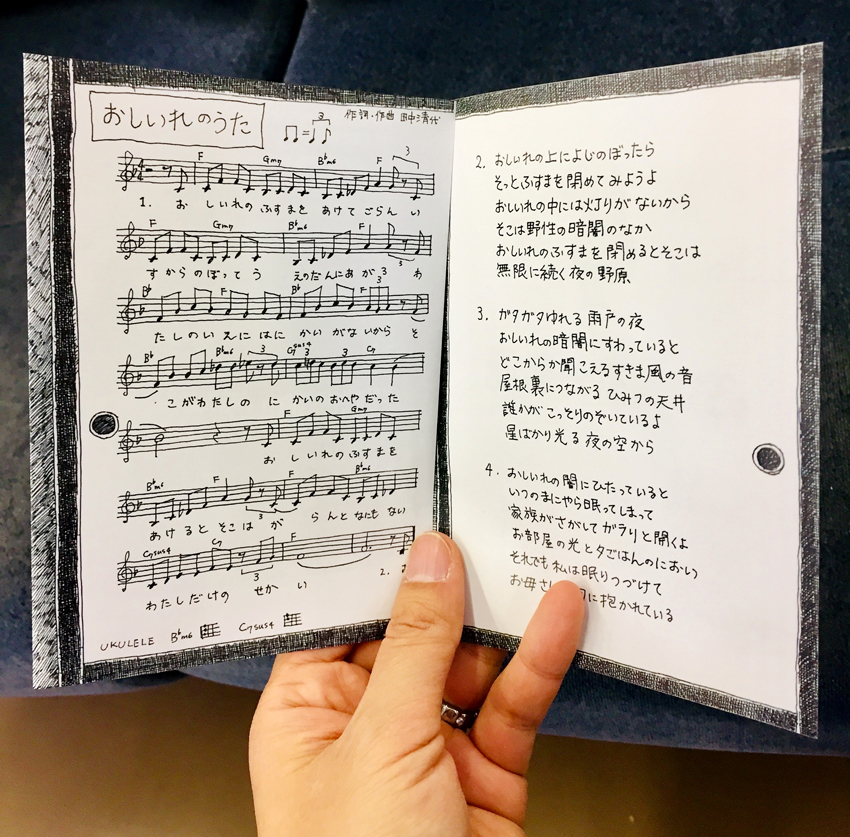 おしいれのうた
作詞・作曲 田中清代
3
F Gm7 B♭m6 F 3
1. お しいれの ふすまを あけて ごらん い
F Gm7 B♭m6 F 3
すからのぼって う えのだんにあがる わ
B♭ F B♭ F 3
たしのいえにはに かいがないから そ
B♭ B♭m6 3 C7sus4 3 3 C7
こがわたしの に かいのおへやだった
F Gm7
お しいれのふすまを
B♭m6 F 3 F B♭m6
あけると そこは が らんと なにも ない
C7sus4 C7 3 F
わたしだけの せか い 2. お
UKULELE B♭m6 C7sus4
2. おしいれの上によじのぼったら
そっとふすまを閉めてみようよ
おしいれの中には灯りがないから
そこは野性の暗闇のなか
おしいれのふすまを閉めるとそこは
無限に続く夜の野原
3. ガタガタゆれる雨戸の夜
おしいれの暗闇にすわっていると
どこからか聞こえるすきま風の音
屋根裏につながるひみつの天井
誰かがこっそりのぞいているよ
星ばかり光る夜の空から
4. おしいれの闇にひたっていると
いつのまにやら眠ってしまって
家族がさがしてガラリと開くよ
お部屋の光と夕ごはんのにおい
それでも私は眠りつづけて
お母さ に抱かれている